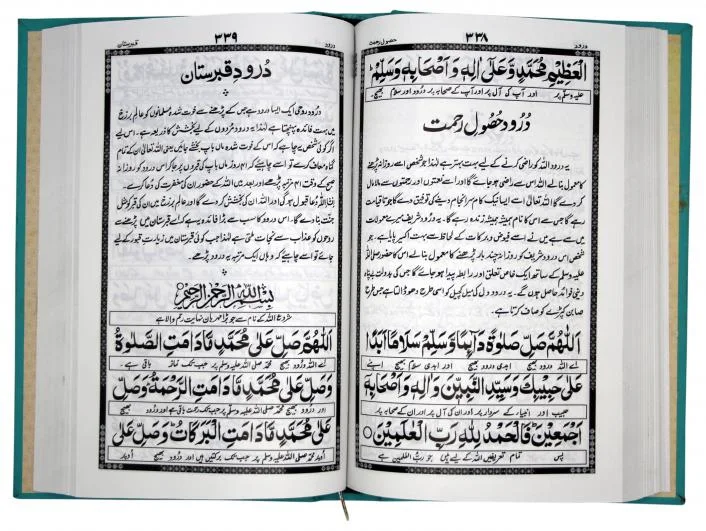 درود
۳۳۸
حصول رحمت
الْعَظِیْمِ مُحَمَّدٍ وَّعَلٰی اٰلِهٖ وَ اَصْحَابِهٖ وَسَلِّمْ
علیہ وسلم پر اور آپ کی آل پر اور آپ کے صحابہ پر درود اور سلام بھیج
دُرُود حُصُولِ رحمت
یہ درود اللہ کو راضی کرنے کے لیے بہت بہتر ہے لہٰذا جو شخص اسے روزانہ پڑھنے
کا معمول بنالے اللہ اس سے راضی ہو جائے گا اور اسے نعمتوں اور رحمتوں سے مالا مال
کر دے گا اللہ تعالیٰ اسے ایسا نیک کام سرانجام دینے کی توفیق دے گا جو تا قیامت
رہے گا جس سے اس کا نام ہمیشہ ہمیشہ زندہ رہے گا۔ یہ درود شریف میرے معمولات
میں سے ہے میں نے اسے فیوض و برکات کے لحاظ سے بہت اکسیر پایا ہے۔ جو
شخص اس درود شریف کو روزانہ چند بار پڑھنے کا معمول بنالے اس کا حضور صلی اللہ
علیہ وسلم کے ساتھ ایک خاص تعلق اور رابطہ پیدا ہو جائے گا جس کی بدولت بے پناہ
دینی فوائد حاصل ہوں گے۔ یہ درود دل کی میل کچیل کو اسی طرح دھو ڈالتا ہے جس طرح
صابن کپڑے کو صاف کرتا ہے۔
اَللّٰهُمَّ صَلِّ صَلٰوةً دَآىِٕمًا وَّسَلِّمْ سَلَامًا اَبَدًا
اے اللہ درود بھیج ابدی درود بھیج اور ابدی سلام بھیج اپنے
عَلٰی حَبِیْبِكَ وَسَیِّدِ النَّبِیِّیْنَ وَاٰلِهٖ وَاَصْحَابِهٖ
حبیب اور انبیاء کے سردار پر اور ان کی آل پر اور ان کے صحابہ پر
اَجْمَعِیْنَ فَالْحَمْدُ لِلّٰهِ رَبِّ الْعٰلَمِیْنَ
پس تمام تعریفیں اللہ کے لیے ہیں جو رب العٰلمین ہے
درود
۳۳۹
قبرستان
دُرُودِ قبرستان
درود روحی ایک ایسا درود ہے جس کے پڑھنے سے فوت شدہ مسلمانوں کو عالم برزخ
میں بہت فائدہ پہنچتا ہے لہٰذا یہ درود مردوں کے لیے بخشش کا ذریعہ ہے۔ اس لیے
اگر کوئی شخص یہ چاہے کہ اس کے فوت شدہ ماں باپ بخشے جائیں یعنی اللہ ان کے تمام
گناہ معاف کرے تو اسے چاہیئے کہ ۴۱ روز ماں باپ کی قبروں پر جا کر اس درود کو روزانہ
صبح کے وقت ۴۱ مرتبہ پڑھے اور بعد میں اللہ کے حضور ان کی مغفرت کی دعا کرے۔
انشاء اللہ دعا قبول ہو گی اور اللہ ان کی بخشش کر دے گا اور عالم برزخ میں ان کی قبر کو مثل
جنت بنا دے گا۔ اس درود کا سب سے بڑا فائدہ یہ ہے کہ اسے قبرستان میں پڑھنے سے
روحوں کو عذاب سے نجات ملتی ہے لہٰذا جب کوئی قبرستان میں زیارت قبور کے لیے
جائے تو اسے چاہیئے کہ وہاں ایک مرتبہ یہ درود پڑھے۔
بِسْمِ اللّٰهِ الرَّحْمٰنِ الرَّحِیْمِ
شروع اللہ کے نام سے جو بڑا مہربان نہایت رحم والا ہے
اَللّٰهُمَّ صَلِّ عَلٰی مُحَمَّدٍ مَّا دَامَتِ الصَّلٰوةُ
اے اللہ درود بھیج محمد صلی اللہ علیہ وسلم پر جب تک نماز باقی ہے۔
وَصَلِّ عَلٰی مُحَمَّدٍ مَّا دَامَتِ الرَّحْمَةُ وَصَلِّ
اور درود بھیج محمد صلی اللہ علیہ وسلم پر جب تک رحمت باقی ہے اور درود بھیج
عَلٰی مُحَمَّدٍ مَّا دَامَتِ الْبَرَكَاتُ وَصَلِّ عَلٰی
اوپر محمد صلی اللہ علیہ وسلم پر جب تک برکتیں ہیں اور درود بھیج اوپر